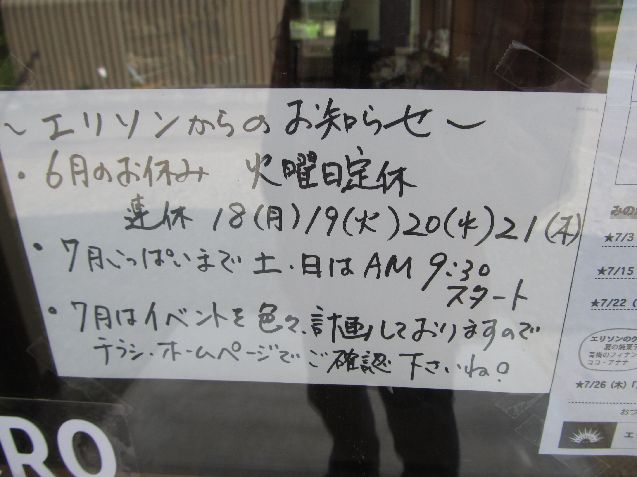 ～エリソンからのお知らせ～
・6月のお休み 火曜日定休
連休 18(月)19(火)20(水)21(木)
・7月いっぱいまで 土・日はAM 9:30
スタート
・7月はイベントを色々、計画しておりますので
チラシ・ホームページでご確認 下さいね!
みの
★7/3
★7/15
★7/22 (
エリソンの
ココ・アナナ
★7/26 (木)
おつ
エ
ERO